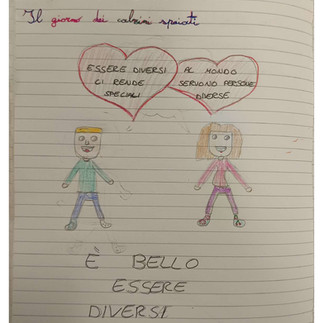 Il giorno dei calzini spaiati
ESSERE DIVERSI
CI RENDE
SPECIALI
AL MONDO
SERVONO PERSONE
DIVERSE
È BELLO
ESSERE
DIVERSI